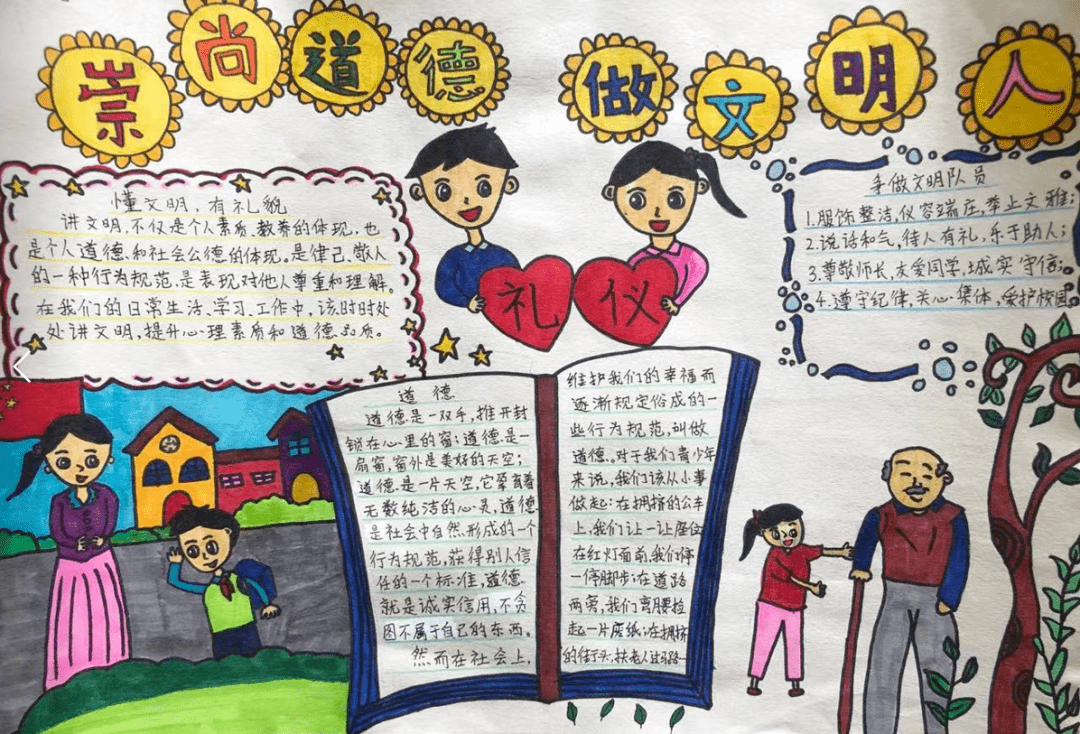 崇尚道德 做文明人
懂文明，有礼貌
讲文明，不仅是个人素质、教养的体现，也
是个人道德和社会公德的体现。是律己、敬人
的一种行为规范，是表现对他人尊重和理解。
在我们的日常生活、学习、工作中，该时时处
处讲文明，提升心理素质和道德品质。
争做文明队员
1.服饰整洁，仪容端庄，举止文雅；
2.说话和气，待人有礼，乐于助人；
3.尊敬师长，友爱同学，诚实守信；
4.遵守纪律，关心集体，爱护校园
礼仪
道德
道德是一双手，推开封
锁在心里的窗；道德是一
扇窗，窗外是美好的天空；
道德是一片天空，它孕育着
无数纯洁的心灵，道德
是社会中自然形成的一个
行为规范，获得别人信
任的一个标准，道德
就是诚实信用，不贪
图不属于自己的东西。
然而在社会上，
维护我们的幸福而
逐渐规定俗成的一
些行为规范，叫做
道德。对于我们青少年
来说，我们该从小事
做起：在拥挤的公车
上，我们让一让座位
在红灯面前，我们停
一停脚步；在道路
两旁，我们弯腰捡
起一片废纸；在拥挤
的街头，扶老人过马路…